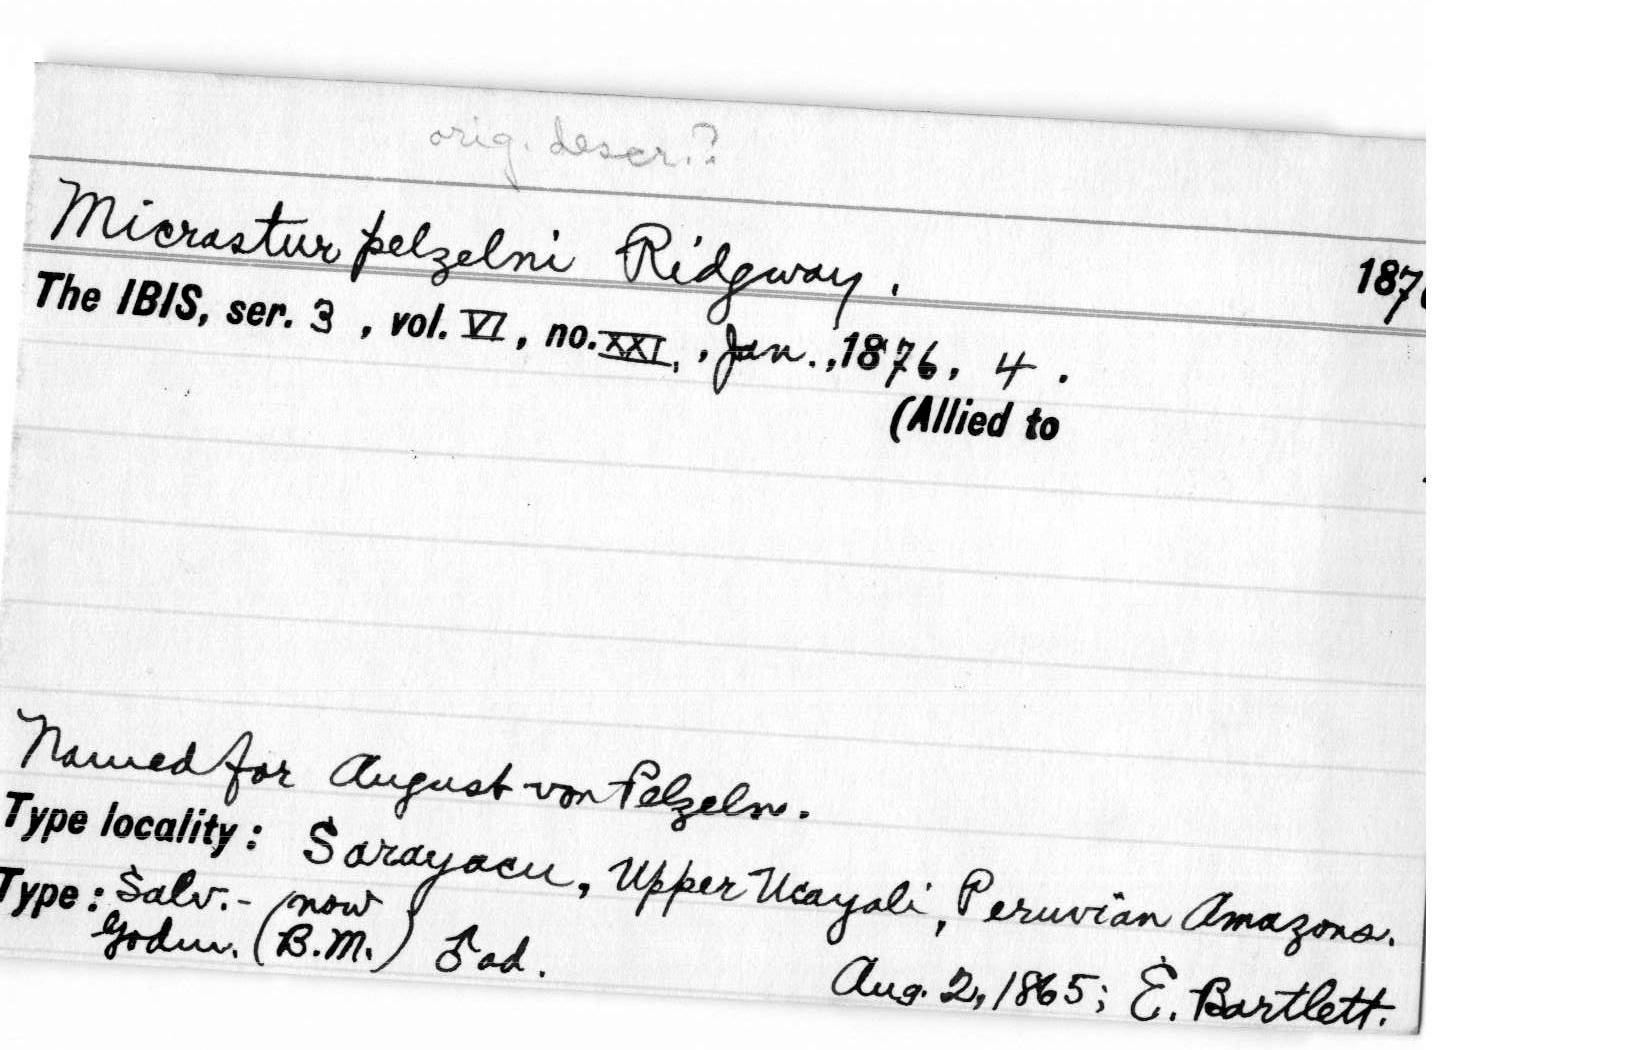 orig. descr.?
Micrastur pelzelni Ridgway. 187
The IBIS, ser. 3, vol. VI, no. XXI, , Jan., 1876, 4.
(Allied to
Named for August von Pelzeln.
Type locality: Sarayacu, Upper Ucayali, Peruvian Amazons.
Type: Salv.- (now
Godm. (B.M.) ♂ ad. Aug. 2, 1865; E. Bartlett.